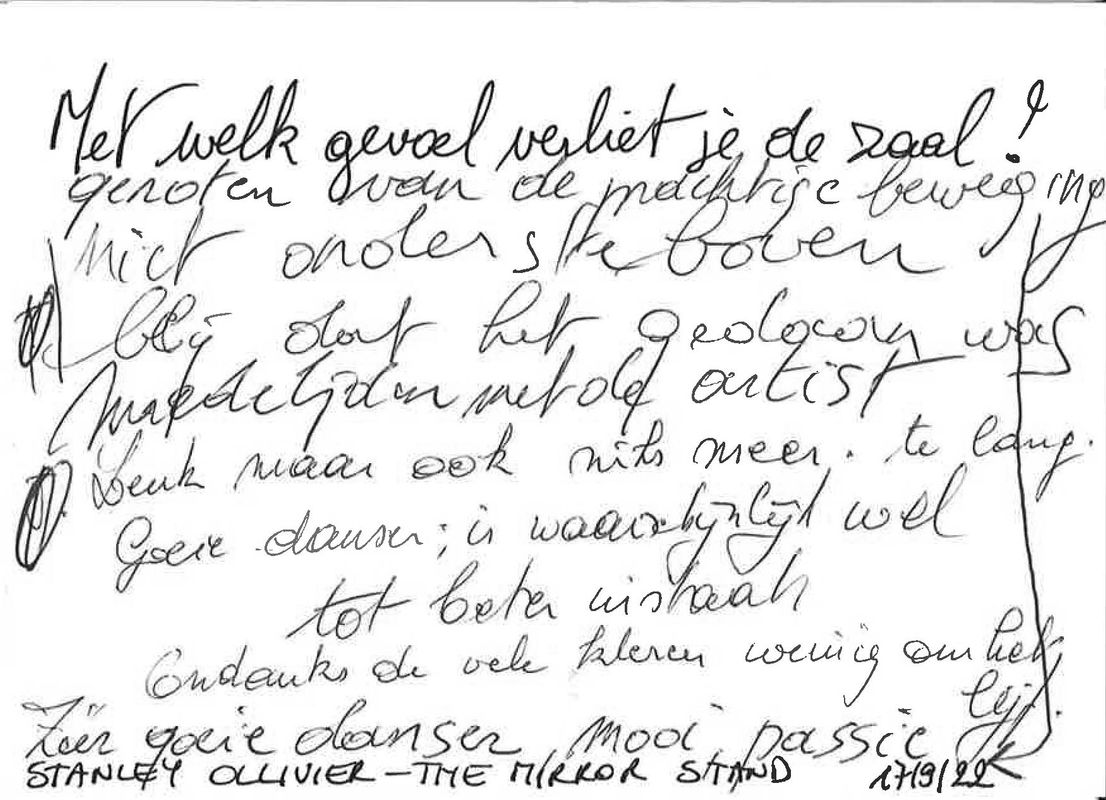 Met welk gevoel verliet je de zaal?
genoten van de prachtige beweging
niet ondersteboven
blij dat het gedaan was
medelijden met de artist
Leuk maar ook niks meer. te lang.
Goeie danser; is waarschijnlijk wel
tot beter in staat
Ondanks de vele kleren weinig om het
lijf.
Zéér goeie danser, mooi, passie
STANLEY OLLIVIER – THE MIRROR STAND 17/9/22